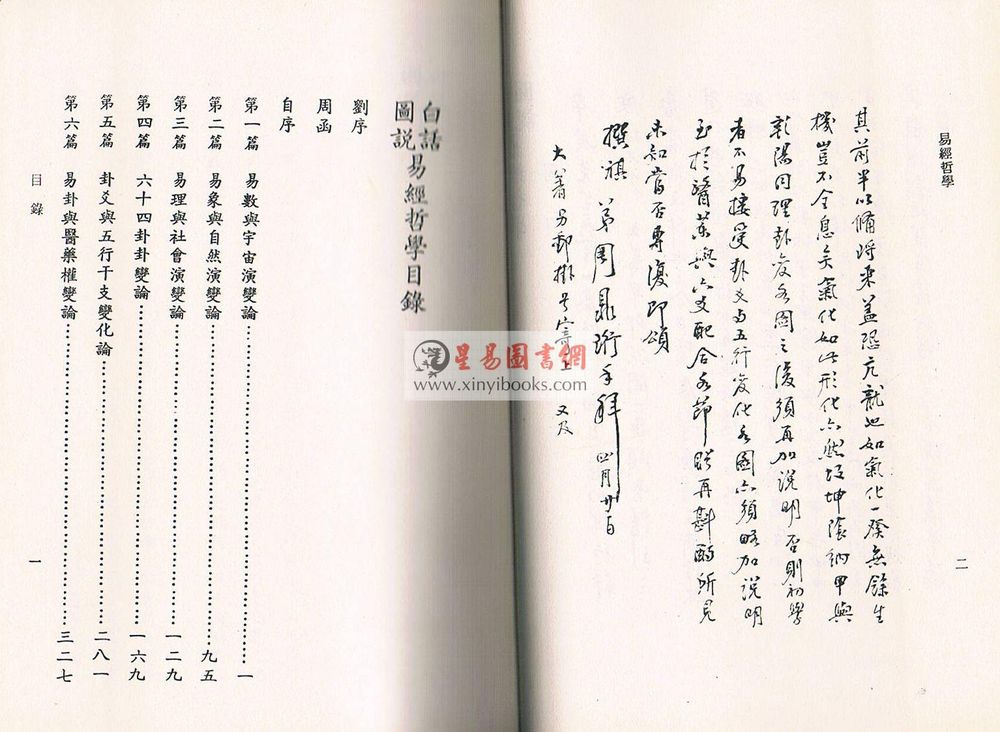 易經哲學
二
其前半以備將來蓋恐亢龍也如氣化一發無餘生
機豈不全息矣氣化如此形化亦然故坤陰納甲與
乾陽同理卦變各圖之後須再加說明否則初學
者不易接受卦爻与五行变化各圖亦須略加說明
至於醫藥與六支配合各節賜再斟酌所見
未知當否專復即頌
撰祺 弟周鼎珩手拜 四月廿日
大著另郵掛号寄上 又及
白話圖說易經哲學目錄
劉序
周函
自序
第一篇 易數與宇宙演變論……一
第二篇 易象與自然演變論……九五
第三篇 易理與社會演變論……一二九
第四篇 六十四卦卦變論……一六九
第五篇 卦爻與五行干支變化論……二八一
第六篇 易卦與醫藥權變論……三二七
目錄
一
星易圖書網
www.xinyibooks.com